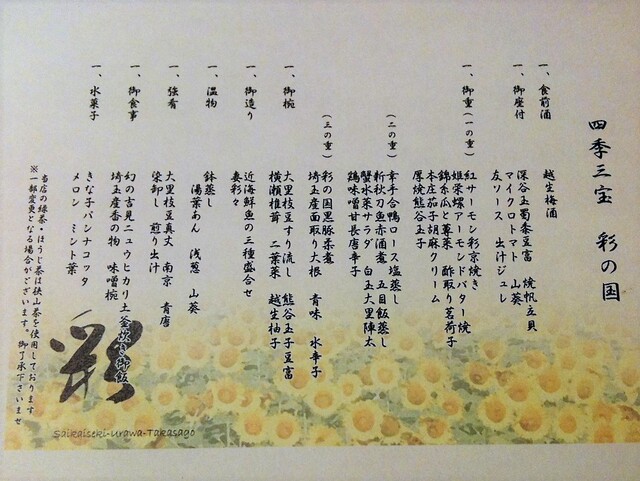 四季三宝　彩の国
一、食前酒
越生梅酒
一、御座付
深谷玉蜀黍豆富　焼帆立貝
マイクロトマト　山葵
左ソース　出汁ジュレ
一、御重(一の重)
紅サーモン彩京焼き
姫栄螺アーモンドバター焼
錦糸瓜と蓴菜　酢取り茗荷子
本庄茄子胡麻クリーム
厚焼熊谷玉子
(二の重)
幸手合鴨ロース塩蒸し
新秋刀魚赤酒煮　五目飯蒸し
蟹水菜サラダ　白玉大里陣太
鶏味噌甘長唐辛子
(三の重)
彩の国黒豚柔煮
埼玉産面取り大根　青味　水辛子
一、御椀
大里枝豆すり流し　熊谷玉子豆富
横瀬椎茸　二葉菜　越生柚子
一、御造り
近海鮮魚の三種盛合せ
妻彩々
一、温物
鉢蒸し
湯葉あん　浅葱　山葵
一、強肴
大里枝豆真丈　南京　青唐
染卸し　煎り出汁
一、御食事
幻の吉見ニュウヒカリ土釜炊き御飯
埼玉産香の物　味噌椀
一、水菓子
きな子パンナコッタ
メロン　ミント葉
※当店の緑茶・ほうじ茶は狭山茶を使用しております
一部変更となる場合がございます。御了承下さいませ
彩
Saikaiseki-Urawa-Takasago